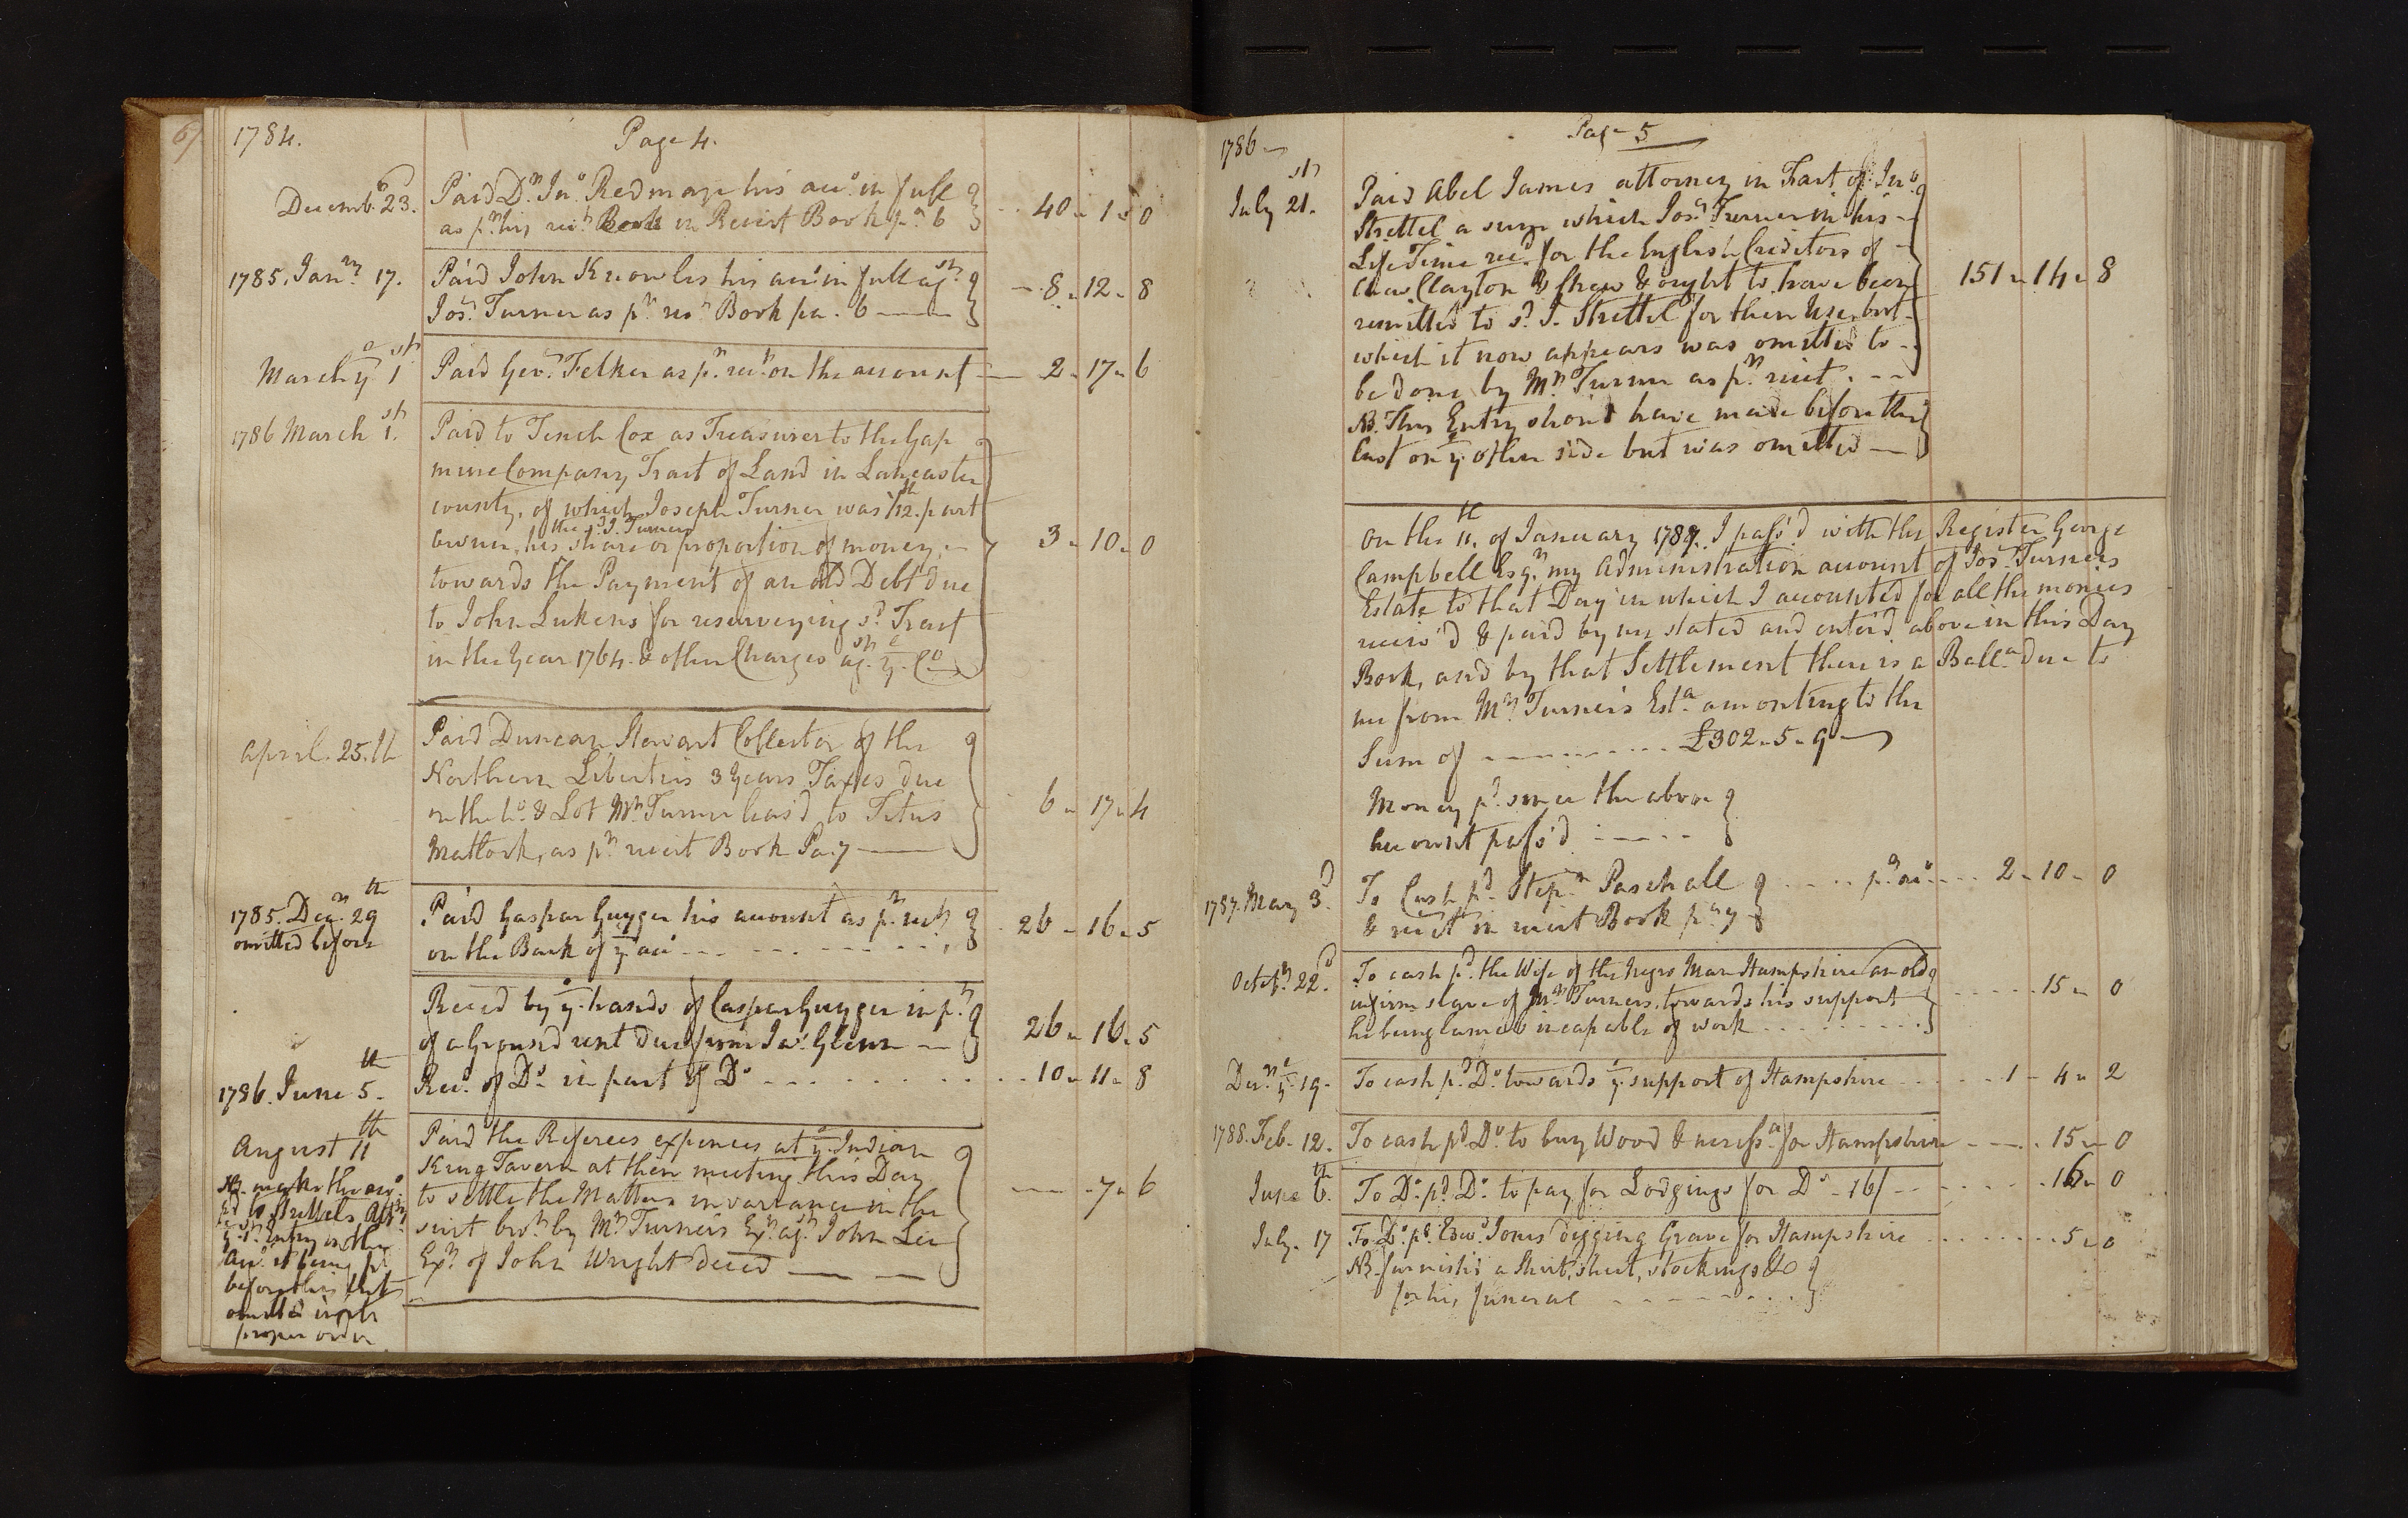 6
1784.
Page 4.
Decemb.r 23.
Paid D.r Jn.o Redman his acc.o in full
as p.r his rec.t Book in Receit Book p.a 6
40 - 1 - 0
1785. Jan.ry 17.
Paid John Knowles his acc.t in full ag.st
Jos. Turner as p.r rec.t Book pa. 6
8 - 12 - 8
March y.e 1.st
Paid Geo. Felker as p.r rec.t on the account
2 - 17 - 6
1786 March 1.st
Paid to Tench Cox as Treasurer to the Gap
mine Company, Tract of Land in Lancaster
county, of which Joseph Turner was 1/12.th part
the s.d J. Turners
owner, his share or proportion of money,
towards the Payment of an old Debt due
to John Lukens for resurveying s.d Tract
in the Year 1764. & other Charges ag.st y.e C.o
3 - 10 - 0
April. 25.th
Paid Duncan Stewart Collector of the
Northern Liberties 3 Years Taxes due
on the h.o & Lot M.r Turner leas'd to Titus
Mattock, as p.r receit Book Pa. 7
6 - 17 - 4
1785. Dec.r 29.th
omitted before
Paid Gaspar Guyger his account as p.r rec.t
on the Back of y.e acc.o
26 - 16 - 5
Receed by y.e hands of Caspar Guyger in p.t
of a Ground rent due from Ja.s Glenn
26 - 16 - 5
1786. June 5.th
Rec.d of D.o in part of D.o
10 - 11 - 8
August 11.th
Paid the Referees expences at y.e Indian
King Tavern at their meeting this Day
to settle the Matters in variance in the
suit bro.t by M.r Turners Ex.r ag.st John Lee
Ex.r of John Wright deceed
- 7 - 6
NB. make the
to Strettels
y.e 1.st Entry in this
Acc.o it being p.d
before this but
omitted in its
proper order
1786
Page 5
July 21.st
Paid Abel James attorney in Fact of Jn.o
Strettel a sum which Jos. Turner in his
Life Time rec.d for the English Creditors of
Clayton & ought to have been
remitted to s.d J. Strettel for their Use, but
which it now appears was omitted to
be done by M.r Turner as p.r receit.
NB. This Entry shou'd have made before the
last on y.e other side but was omitted
151 - 14 - 8
On the 11.th of January 1787. I pass'd with the Register George
Campbell Esq.r my Administration account of Jos. Turners
Estate to that Day in which I accounted for all the monies
receiv'd & paid by me stated and enter'd above in this Day
Book, and by that Settlement there is a Ball.a due to
me from M.r Turner's Est.a amounting to the
Sum of £302 - 5 - 9
Money p.d since the above
Account pass'd
1787. May 3.d
To Cash p.d Step.n Paschall
& rec.t in receit Book p.a 7
p.r acc.o
2 - 10 - 0
Octob.r 22.d
To cash p.d the Wife of the Negro Man Hampshire an old
infirm slave of M.r Turners, towards his support
he being lame & incapable of work
15 - 0
Dec.r y.e 19.
To cash p.d D.o towards y.e support of Hampshire
1 - 4 - 2
1788. Feb. 12.
To cash p.d D.o to buy Wood & necess.a for Hampshire
15 - 0
June 6.th
To D.o p.d D.o to pay for Lodgings for D.o - 16/
16 - 0
July. 17
To D.o p.d Edw.d Jones digging Grave for Hampshire
5 - 0
NB. furnish'd a Shirt, sheet, stockings &c
for his funeral